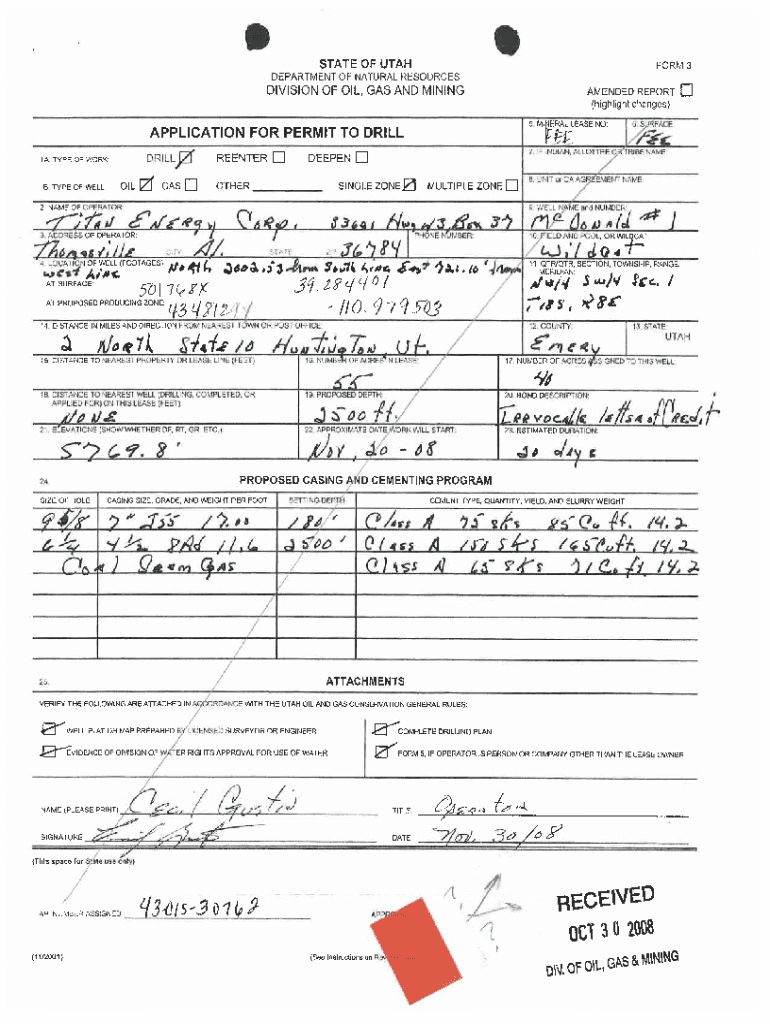 STATE OF UTAH
DEPARTMENT OF NATURAL RESOURCES
DIVISION OF OIL, GAS AND MINING
FORM 3
AMENDED REPORT
(highlight changes)
APPLICATION FOR PERMIT TO DRILL
5. MINERAL LEASE NO: FEE
6. SURFACE: FEE
1A. TYPE OF WORK: DRILL REENTER DEEPEN
7. IF INDIAN, ALLOTTEE OR TRIBE NAME:
B. TYPE OF WELL: OIL GAS OTHER SINGLE ZONE MULTIPLE ZONE
8. UNIT or CA AGREEMENT NAME:
2. NAME OF OPERATOR:
Titan Energy Corp. 33621 Hwy 43, Box 37
9. WELL NAME and NUMBER:
McDonald #1
3. ADDRESS OF OPERATOR: PHONE NUMBER:
Thomasville CITY Al. STATE ZIP 36784
10. FIELD AND POOL, OR WILDCAT:
Wildcat
4. LOCATION OF WELL (FOOTAGES)
North 2002.53 from South Line East 721.10' from
West Line
AT SURFACE: 501768X 39.284401
AT PROPOSED PRODUCING ZONE: -110.979503
11. QTR/QTR, SECTION, TOWNSHIP, RANGE, MERIDIAN:
NW/4 SW/4 Sec. 1
T18S, R8E
14. DISTANCE IN MILES AND DIRECTION FROM NEAREST TOWN OR POST OFFICE:
2 North State 10 Huntington, Ut.
12. COUNTY:
Emery
13. STATE:
UTAH
15. DISTANCE TO NEAREST PROPERTY OR LEASE LINE (FEET)
16. NUMBER OF ACRES IN LEASE:
55
17. NUMBER OF ACRES ASSIGNED TO THIS WELL:
40
18. DISTANCE TO NEAREST WELL (DRILLING, COMPLETED, OR
APPLIED FOR) ON THIS LEASE (FEET)
NONE
19. PROPOSED DEPTH:
2500 ft.
20. BOND DESCRIPTION:
Irrevocable letter of Credit
21. ELEVATIONS (SHOW WHETHER DF, RT, GR, ETC.):
5769.8'
22. APPROXIMATE DATE WORK WILL START:
Nov, 20 - 08
23. ESTIMATED DURATION:
20 days
24. PROPOSED CASING AND CEMENTING PROGRAM
SIZE OF HOLE CASING SIZE, GRADE, AND WEIGHT PER FOOT SETTING DEPTH CEMENT TYPE, QUANTITY, YIELD, AND SLURRY WEIGHT
9 5/8 7" J55 17.00 180' Class A 75 sks 85 Cu ft. 14.2
6 1/4 4 1/2 8Rd 11.6 2500' Class A 150 Sks 165 Cuft. 14.2
Coal Seem Gas Class A 65 sks 71 Co ft 14.2
25. ATTACHMENTS
VERIFY THE FOLLOWING ARE ATTACHED IN ACCORDANCE WITH THE UTAH OIL AND GAS CONSERVATION GENERAL RULES:
WELL PLAT OR MAP PREPARED BY LICENSED SURVEYOR OR ENGINEER
COMPLETE DRILLING PLAN
EVIDENCE OF DIVISION OF WATER RIGHTS APPROVAL FOR USE OF WATER
FORM 5, IF OPERATOR IS PERSON OR COMPANY OTHER THAN THE LEASE OWNER
NAME (PLEASE PRINT) Cecil Gustin TITLE
SIGNATURE DATE Nov. 30/08
(This space for State use only)
API NUMBER ASSIGNED: 43-015-30762
RECEIVED
OCT 30 2008
DIV. OF OIL, GAS & MINING
(11/2001)
(See Instructions on